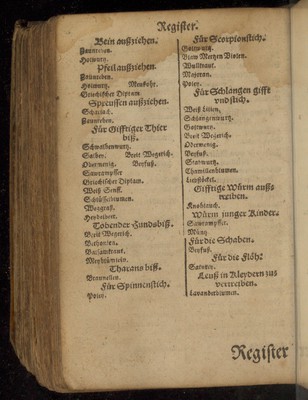 Register.
Bein außziehen.
Zaunreben.
Holwurtz.
Pfeil außziehen.
Zaunreben.
Holwurtz.
Griechischer Diptam
Spreussen außziehen.
Scharlach.
Zaunreben.
Für Gifftiger Thier
biß.
Schwalbenwurtz.
Salbey. Breit Wegerich.
Odermenig. Beyfuß.
Sawrampffer
Griechischer Diptam.
Weiß Senff.
Schlüsselblumen.
Heydelbeer.
Tobender Hundsbiß.
Breit Wegerich.
Bethonien.
Meyblümlein.
biß.
Braunellen.
Für Spinnenstich.
Poley.
Für Scorpionstich.
Goltwurtz.
Blaw Mertzen Violen.
Wullkraut.
Majoran.
Poley.
Für Schlangen gifft
vnd stich.
Weiß Lilien.
Schlangenwurtz.
Goltwurtz.
Breit Wegerich.
Odermenig.
Beyfuß.
Chamillenblumen.
Liebstöckel.
Gifftige Würm auß-
treiben.
Knoblauch.
Würm junger Kinder.
Sawrampffer.
Müntz.
Für die Schaben.
Beyfuß.
Für die Flöh.
Leuß in Kleydern zuu
vertreiben.
Lavanderblumen.
Register